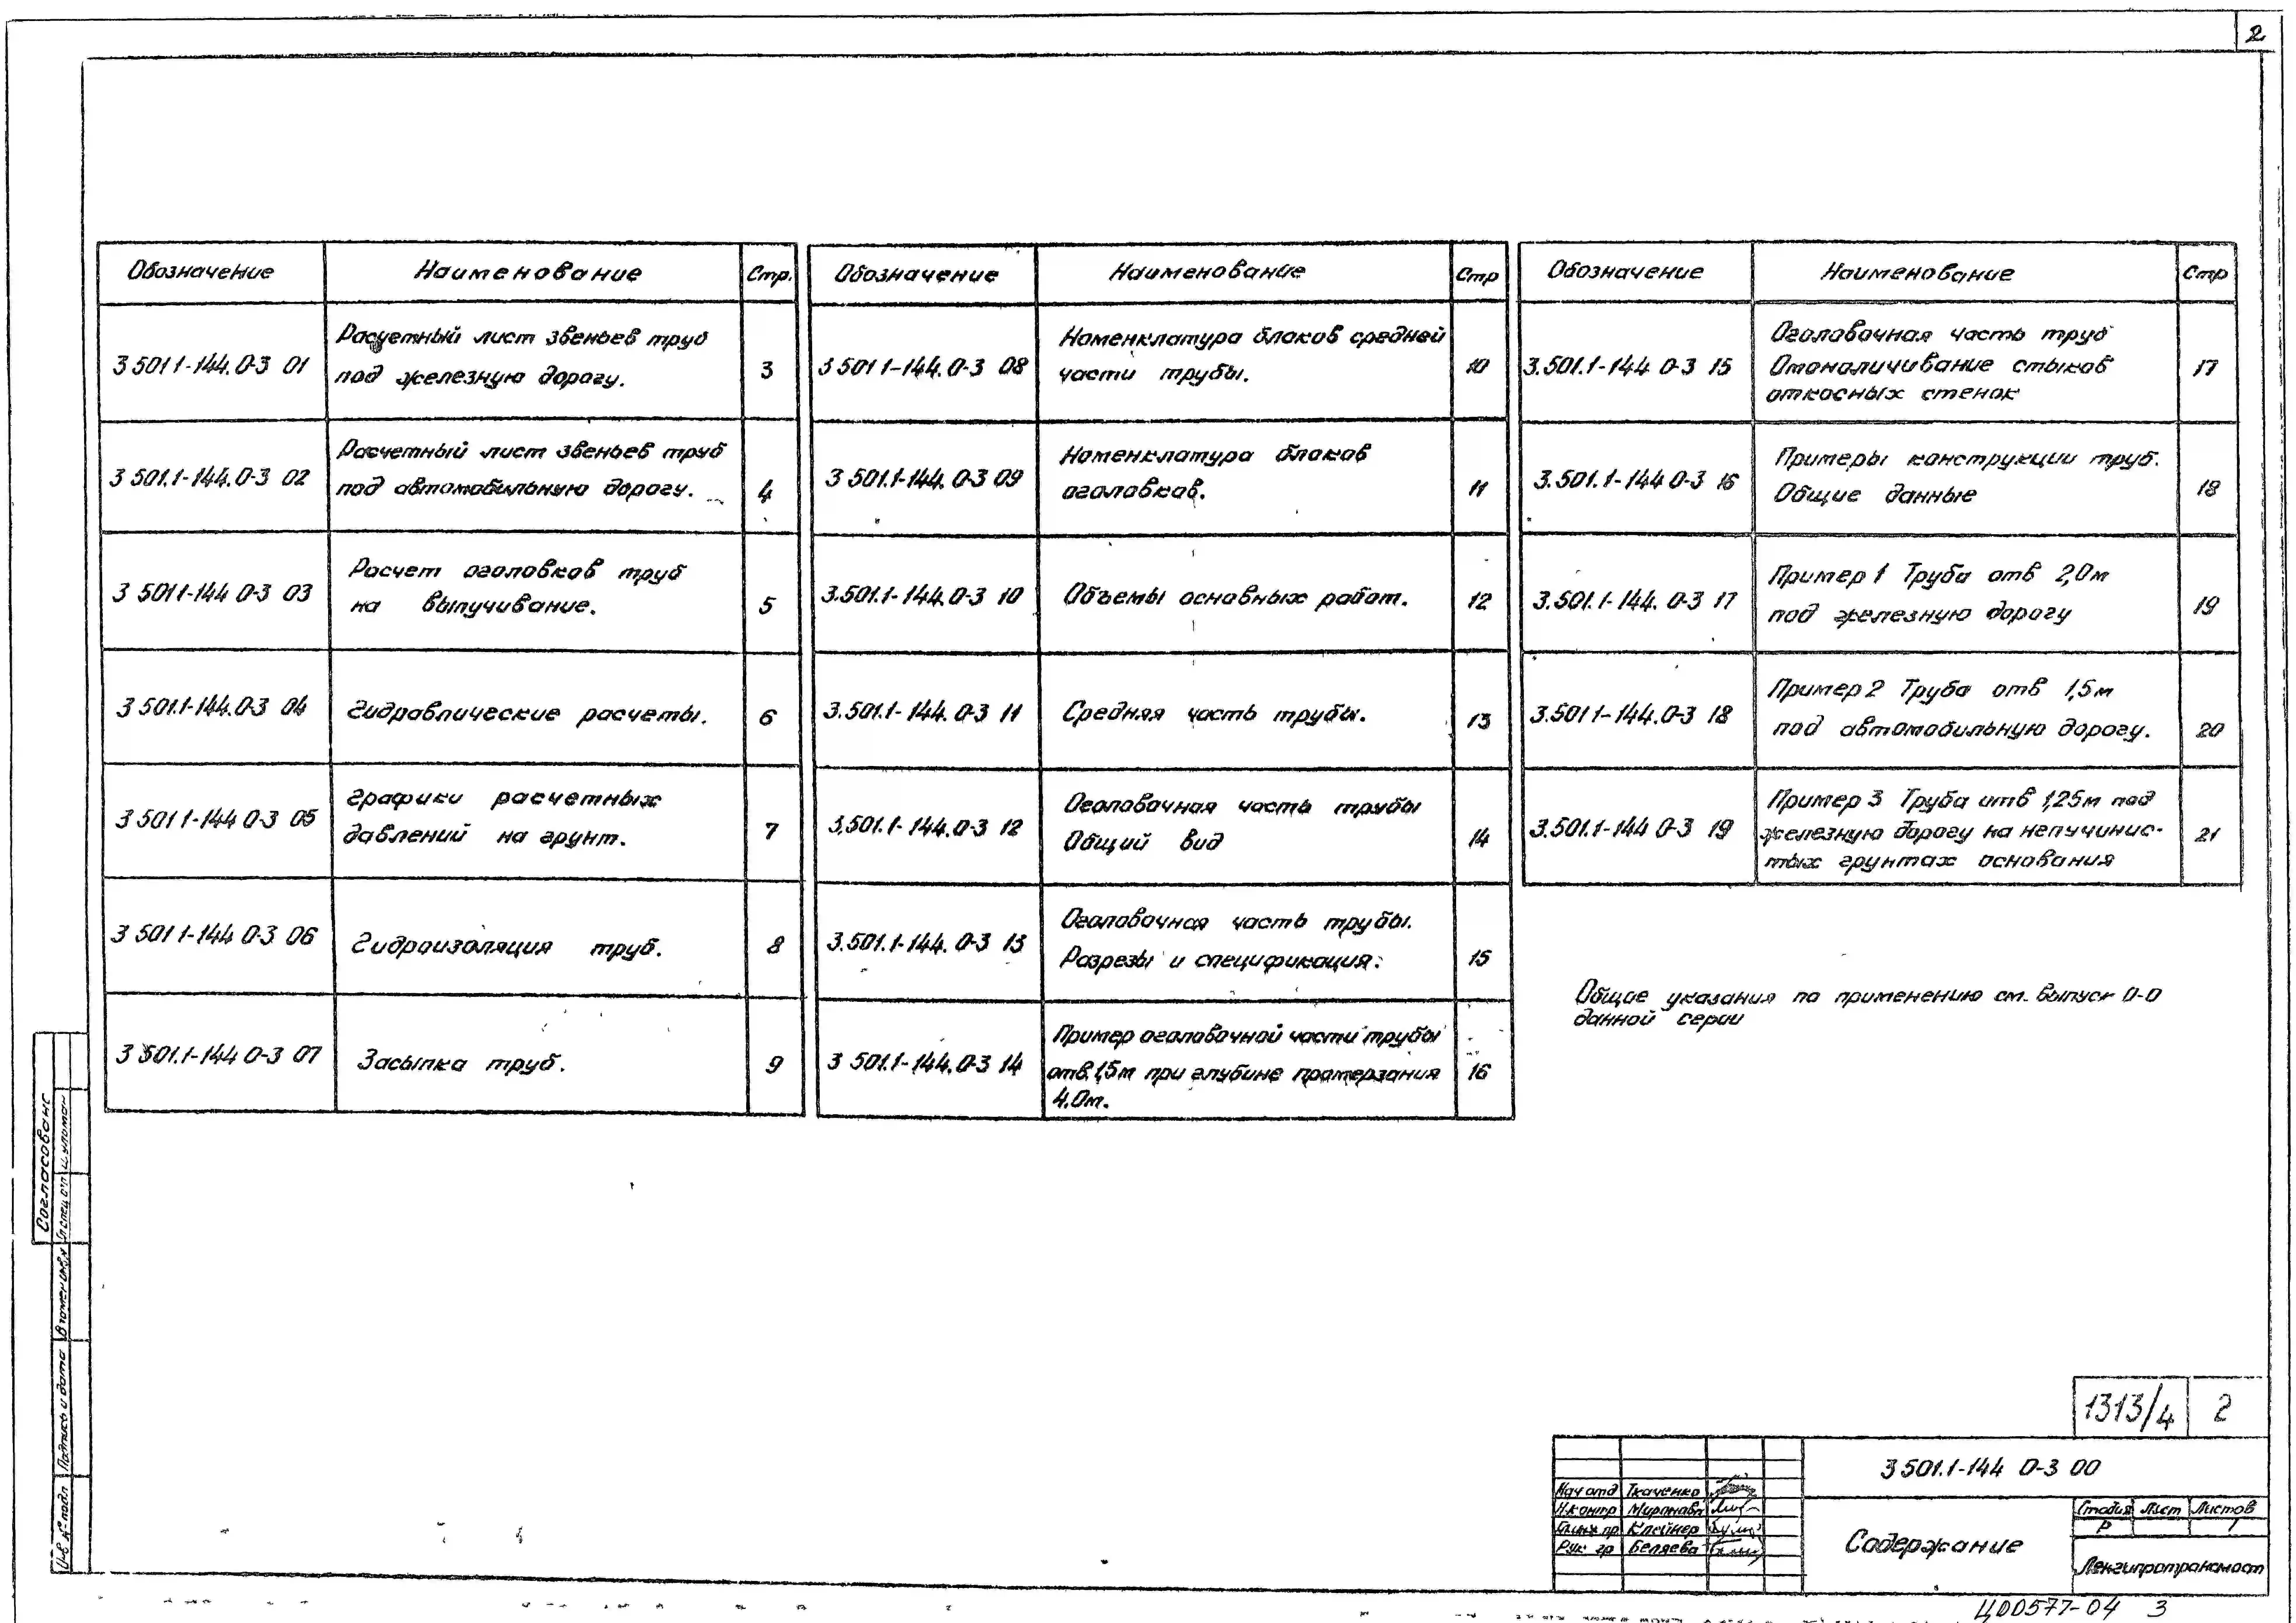 2
Обозначение Наименование Стр.
3 501 1-144. 0-3 01 Расчетный лист звеньев труб
под железную дорогу. 3
3 501.1-144. 0-3 02 Расчетный лист звеньев труб
под автомобильную дорогу. 4
3 501 1-144 0-3 03 Расчет оголовков труб
на выпучивание. 5
3 501.1-144. 0-3 04 Гидравлические расчеты. 6
3 501 1-144 0-3 05 Графики расчетных
давлений на грунт. 7
3 501 1-144 0-3 06 Гидроизоляция труб. 8
3 501.1-144 0-3 07 Засыпка труб. 9
Обозначение Наименование Стр
3 501 1-144. 0-3 08 Номенклатура блоков средней
части трубы. 10
3 501.1-144. 0-3 09 Номенклатура блоков
оголовков. 11
3.501.1-144. 0-3 10 Объемы основных работ. 12
3.501.1-144. 0-3 11 Средняя часть трубы. 13
3.501.1-144. 0-3 12 Оголовочная часть трубы
Общий вид 14
3.501.1-144. 0-3 13 Оголовочная часть трубы.
Разрезы и спецификация. 15
3 501.1-144. 0-3 14 Пример оголовочной части трубы
отв. 1,5м при глубине промерзания
4.0м. 16
Обозначение Наименование Стр
3.501.1-144 0-3 15 Оголовочная часть труб
Омоноличивание стыков
откосных стенок 17
3.501.1-144 0-3 16 Примеры конструкции труб.
Общие данные 18
3.501.1-144. 0-3 17 Пример 1 Труба отв 2,0м
под железную дорогу 19
3.501 1-144. 0-3 18 Пример 2 Труба отв 1,5м
под автомобильную дорогу. 20
3.501.1-144 0-3 19 Пример 3 Труба отв 1,25м под
железную дорогу на непучинис-
тых грунтах основания 21
Общие указания по применению см. выпуск 0-0
данной серии
Согласовано
Взамен инв.№
Подпись и дата
Инв № подл
1313/4 2
3 501.1-144 0-3 00
Нач отд Ткаченко
Н.контр Миронова
Гл.инж пр Клейнер
Рук гр Беляева
Содержание
Стадия Лист Листов
Р 1
Ленгипротрансмост
Ц00577-04 3